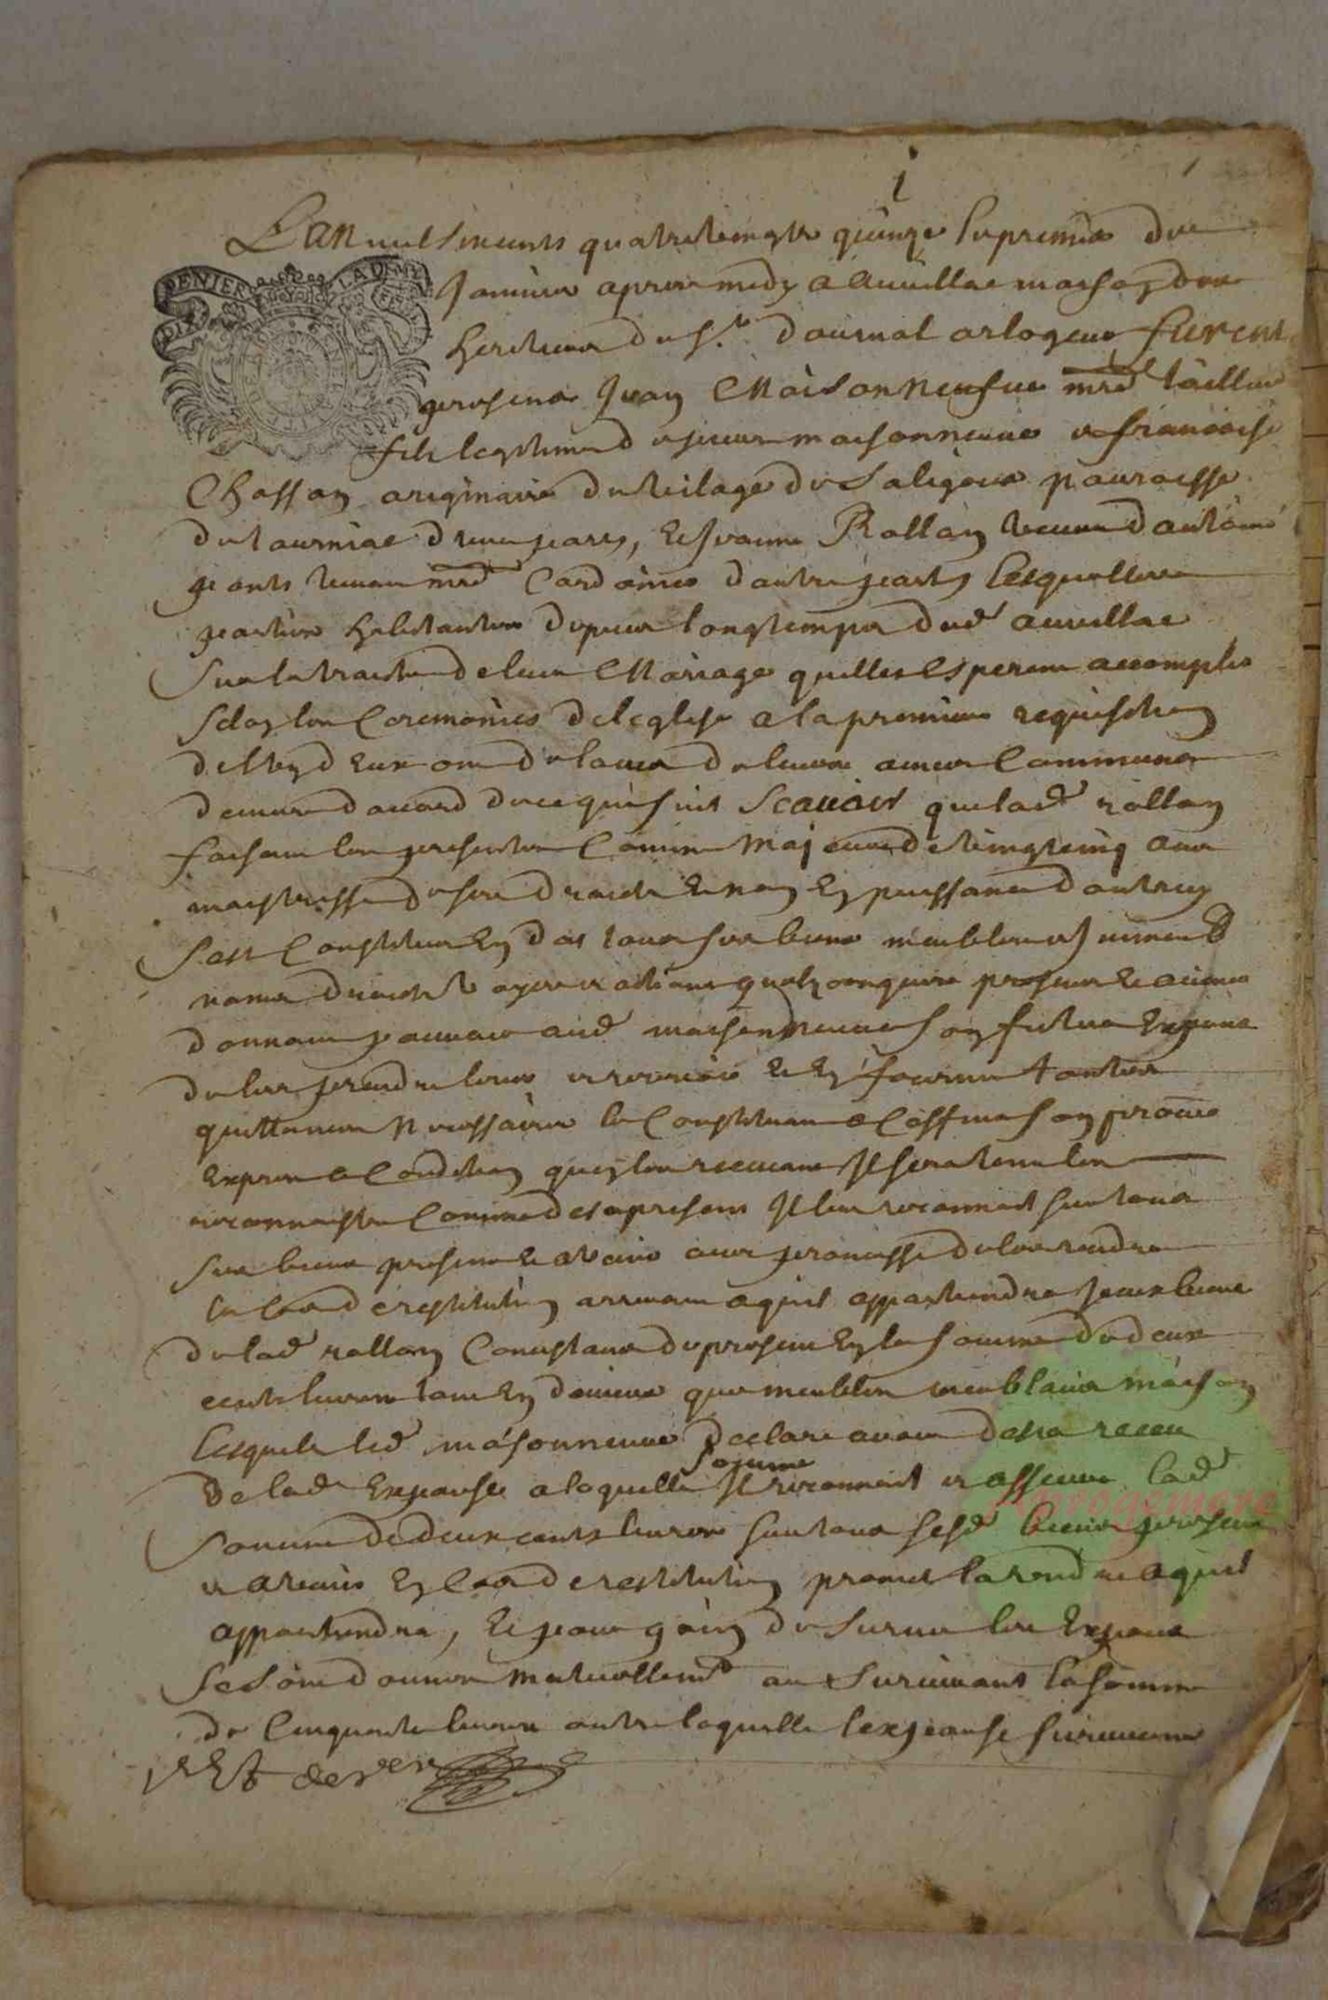 i
1
L'an mil six cents quatre vingts quinze le premier du
DIX DENIERS LA DEMY FEUILLE
Janvier apres midy a Aurillac maison des
heritiers du Sr. Daurnal orlogeur furent
presens Jean Maisonneufve mre tailleur
fils legitime de maisonneuve et francoise
Chassan originaire du vilage de Saligoux parroisse
de tourniac d'une part, et Jeanne Rollan d'antoine
Cardaire d'autre part, lesquelles
parties habitantes depuis longtemps dud Aurillac
sur le traicte de leur Mariage quelles esperent accomplir
selon les Ceremonies de l'eglise a la premiere requisition
de l'un d'eux ont de leurs communs
demure d'accord de ce qui suit Scavoir que lad rollan
faisant les presentes comme majeure de vingt cinq ans
maistresse de ses droicts et non en puissance d'autruy
s'est constituee en dot tous ses biens meubles et immeubles
noms droicts voyes et actions quelconques presens et avenir
donnant pouvoir aud maisonneuve son futur expoux
de les prendre lever et recevoir et en fournir toutes
quittances necessaires le constituant a cest effet son procureur
expres a condition qu'en les recevant il sera tenu les
reconnoistre comme des a present il les reconnoit sur tous
ses biens presens et avenir avec promesse de les rendre
le cas de restitution arrivant a qui appartiendra iceux biens
de lad rollan consistans de present en la somme de deux
cents livres tant en deniers que meubles meublans maison
lesquels led maisonneuve declare avoir desja receu
de lad expouse a laquelle somme il reconnoit et asseure lad
somme de deux cents livres sur tous sesd biens presens
et avenir en cas de restitution promet la rendre a qui
appartiendra, et pour gain de survie les expoux
se sont donnes mutuellement au survivant la somme
de cinquante livres outre laquelle l'expouse survivant